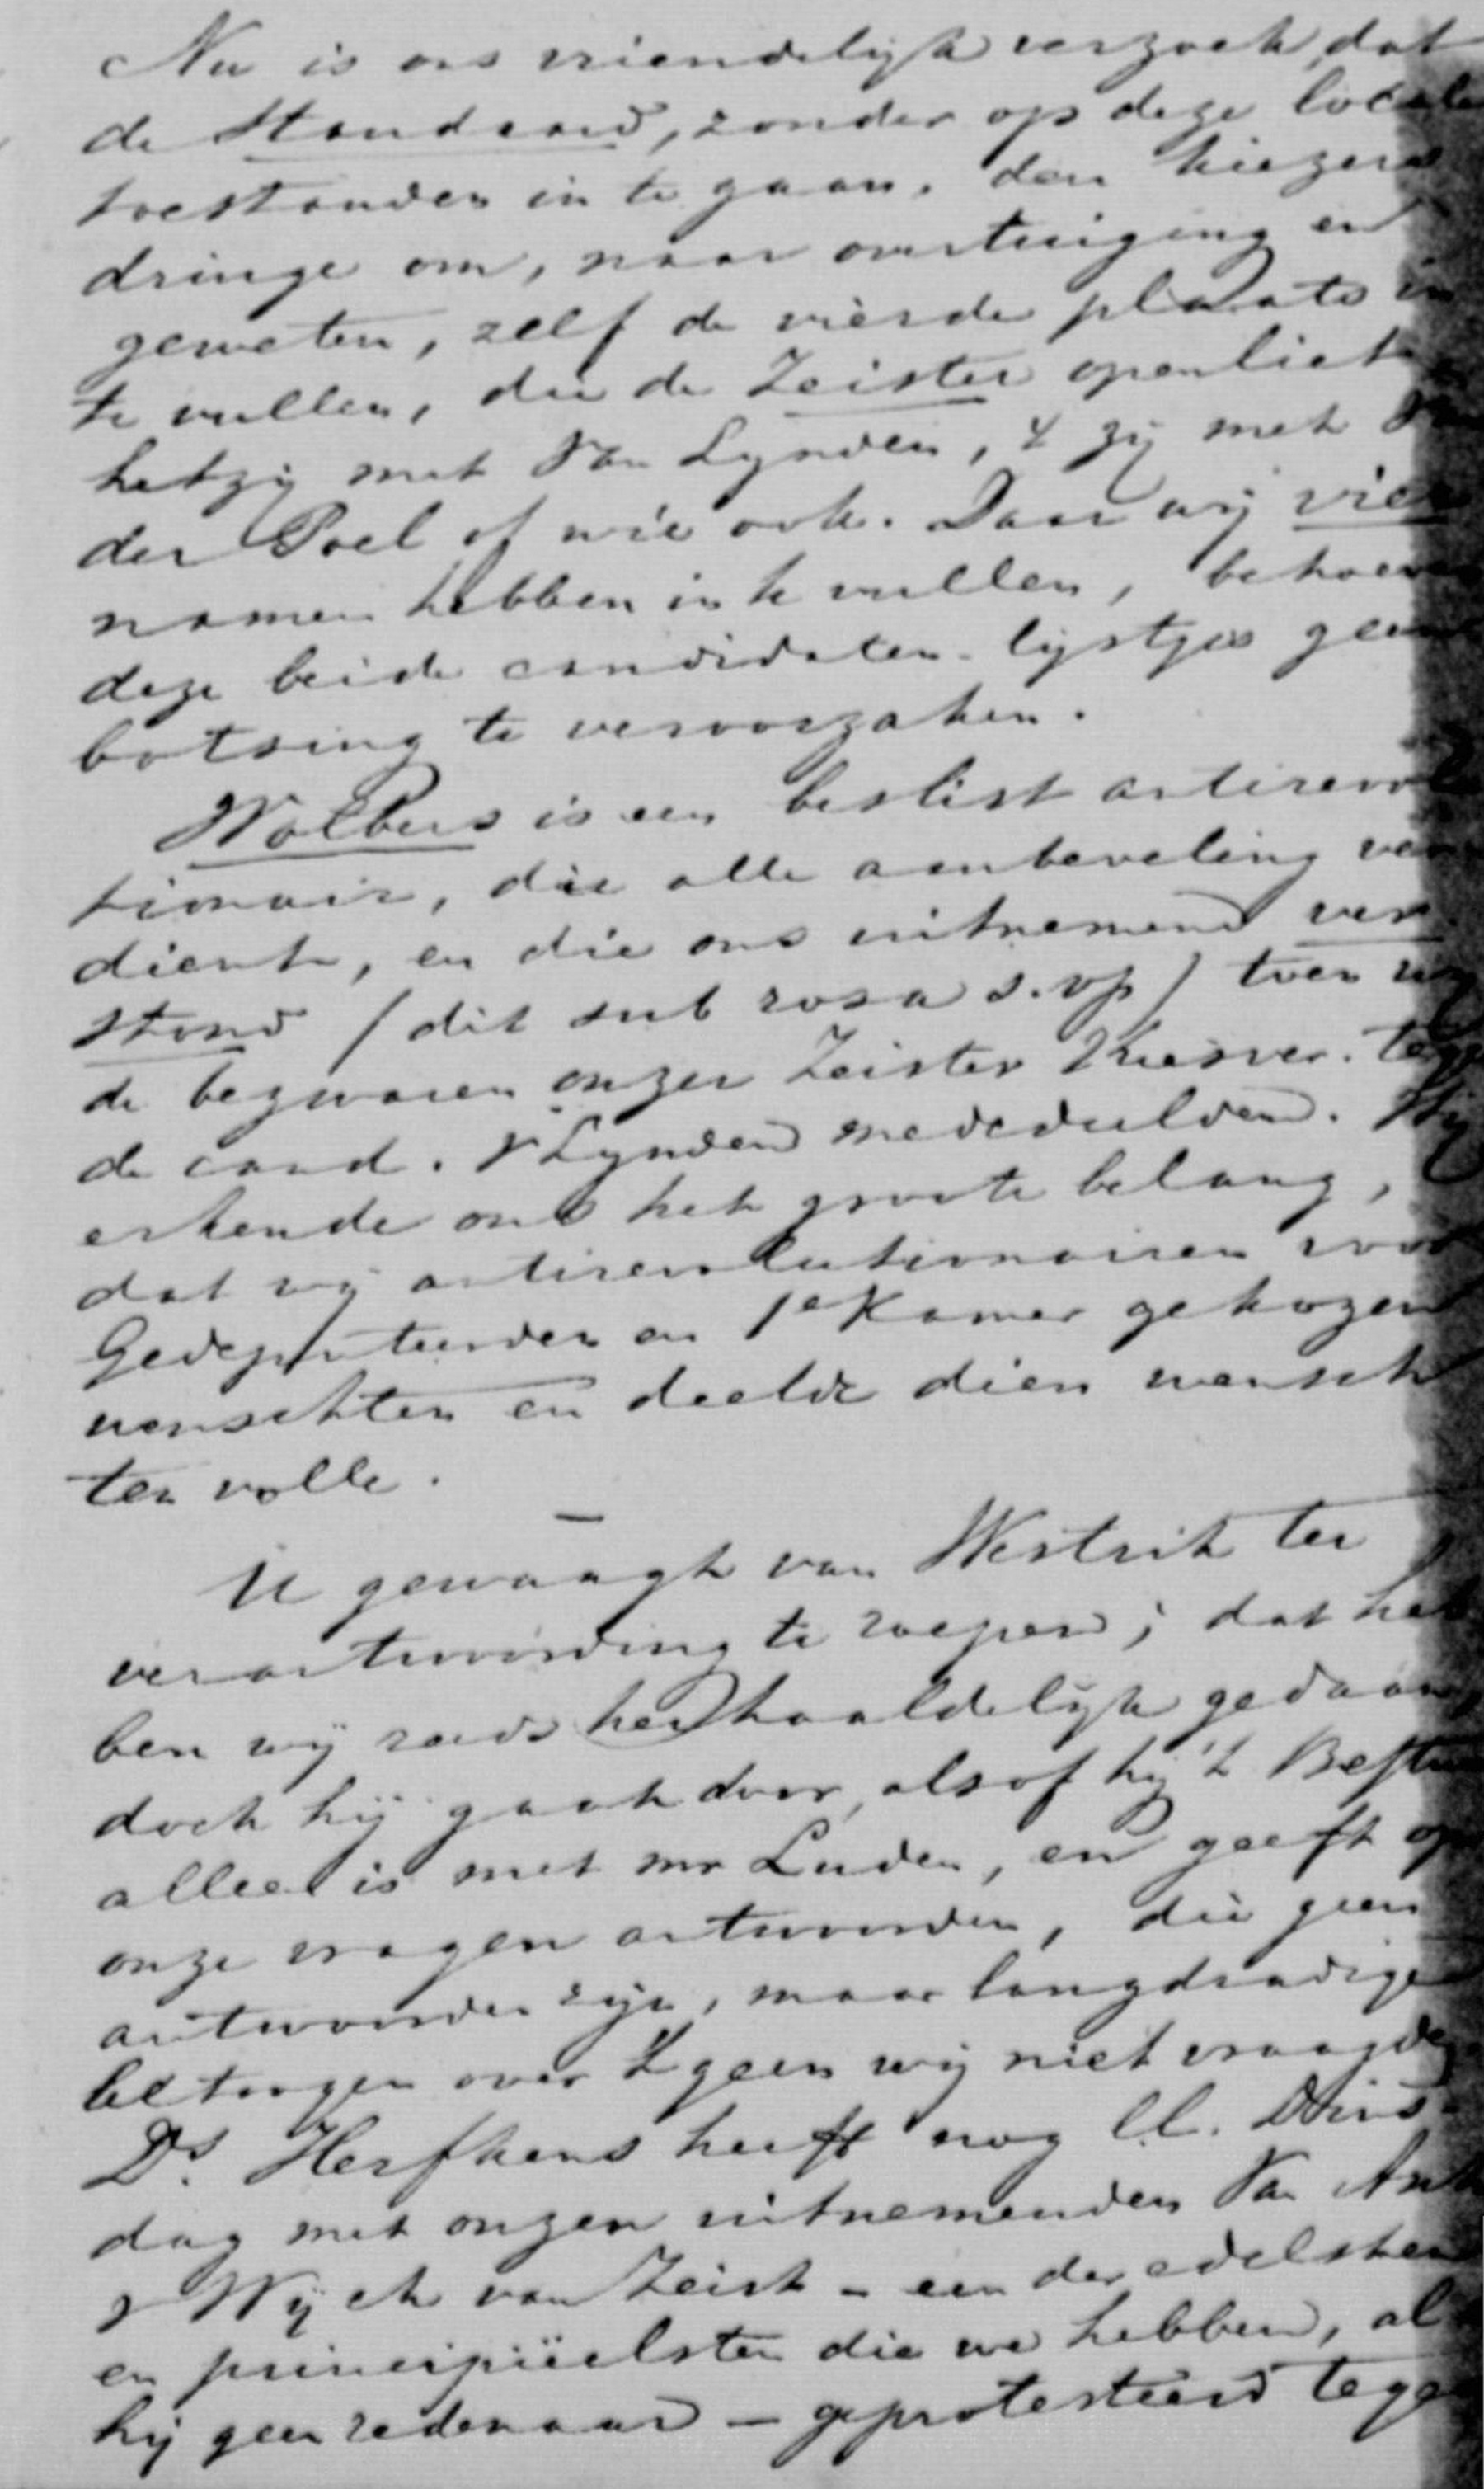 Nu is ons vriendelijk verzoek, dat
de Standaard, zonder op deze locale
toestanden in te gaan, den kiezers
dringe om, naar overtuiging en
geweten, zelf de vierde plaats in
te vullen, die de Zeister openliet
hetzij met Van Lynden, 't zij met
der Poel of wie ook. Daar wij vier
namen hebben in te vullen, behoeven
deze beide candidaten-lijstjes geen
botsing te veroorzaken.
Wolbers is een beslist antirevolu
tionair, die alle aanbeveling ver
dient, en die ons uitnemend ver
stond (dit sub rosa s.v.p) toen wij
de bezwaren onzer Zeister Kiesver. tegen
de cand. v Lynden mededeelden. Hij
erkende ons het groote belang,
dat wij antirevolutionairen voor
Gedeputeerden en 1e Kamer gekozen
wenschten en deelde dien wensch
ten volle.
—
U gewaagt van Westrik ter
verantwoording te roepen; dat heb
ben wij reeds herhaaldelijk gedaan
doch hij gaat door, alsof hij 't Bestuur
alleen is met mr Luden, en geeft op
onze vragen antwoorden, die geen
antwoorden zijn, maar langdradige
betoogen over 't geen wij niet vraagden
Ds. Herfkens heeft nog ll. Dins
dag met onzen uitnemenden Van
v Wijck van Zeist - een der edelsten
en principiëelsten die we hebben, al
hij geen redenaar - geprotesteerd tegen